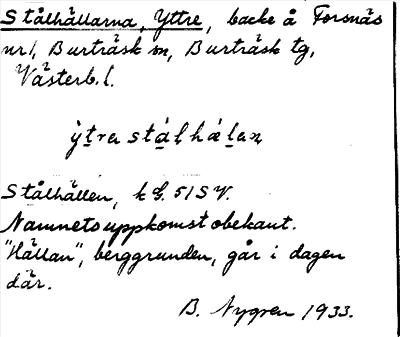 Stålhällarna, Yttre, backe å Forsnäs
nr 1, Burträsk sn, Burträsk tg,
Västerb. l.
ỳtra stálhǽlan
Stålhällen, k G. 51 S V.
Namnets uppkomst obekant.
"Hällan", berggrunden, går i dagen
där.
B. Nygren 1933.